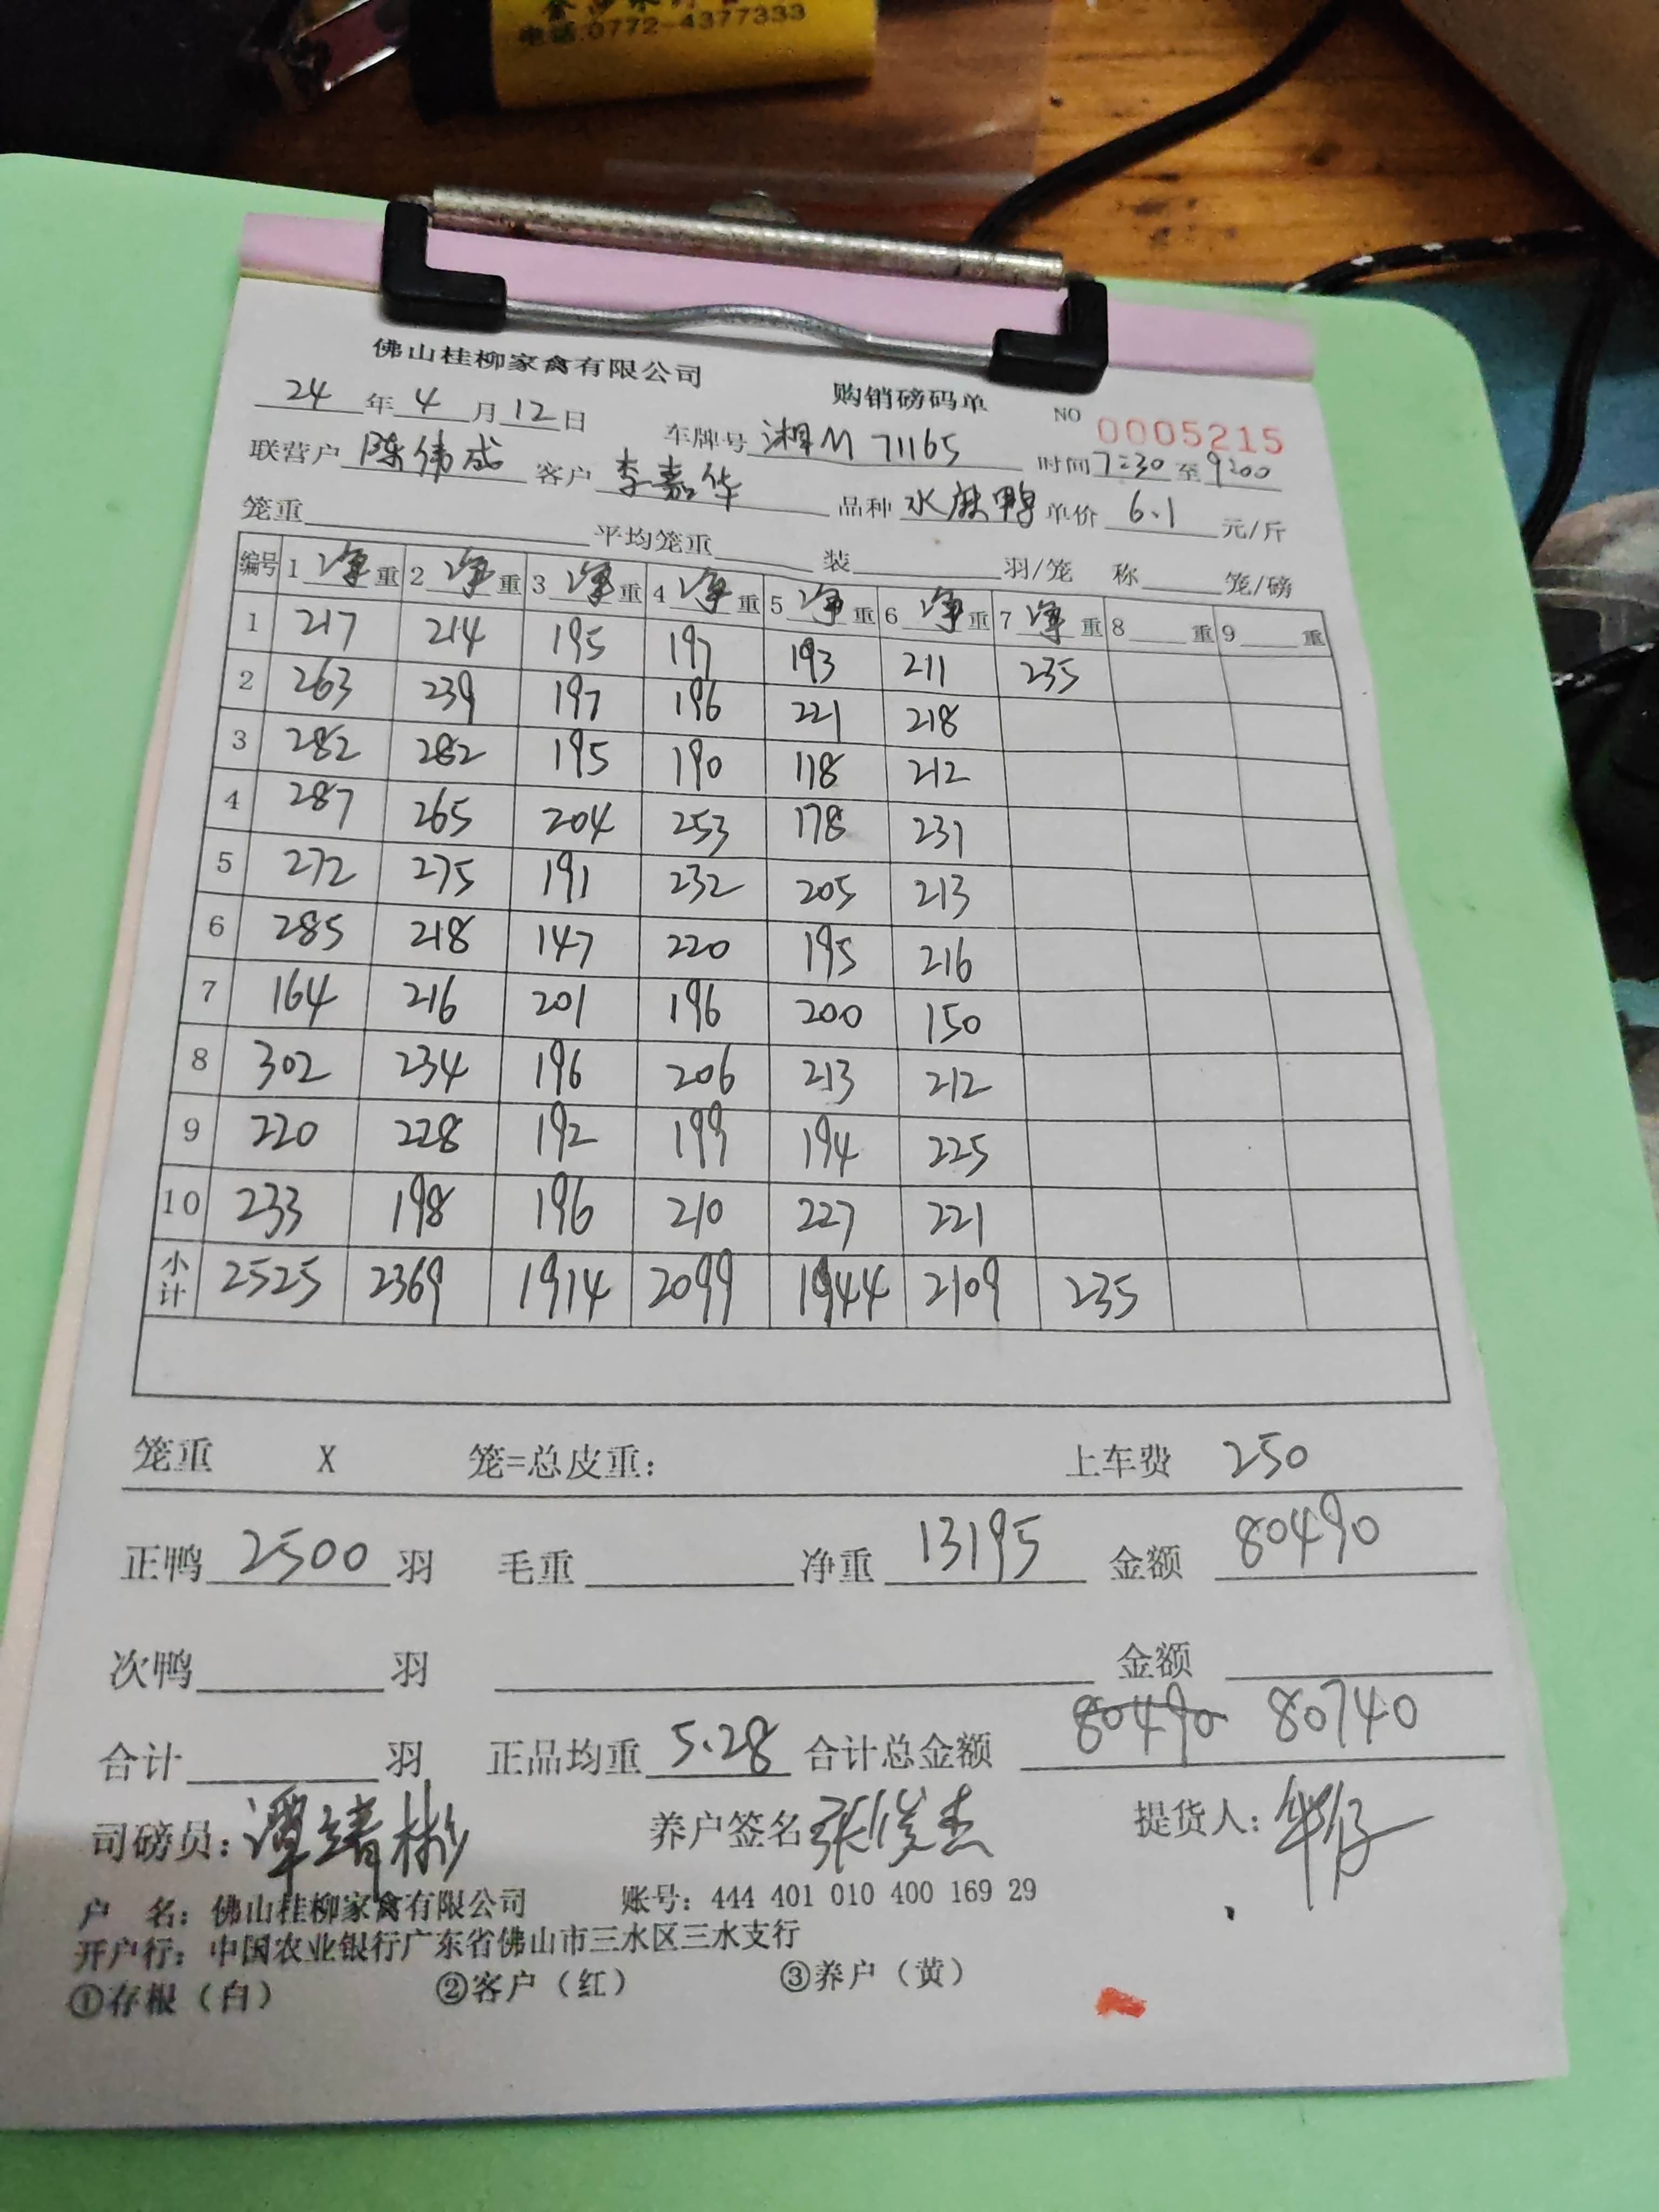 电话:0772-4377333
佛山桂柳家禽有限公司 购销磅码单 NO 0005215
24年4月12日 车牌号 湘M 71165 时间7:30至9:00
联营户 陈伟成 客户 李嘉华 品种 水麻鸭 单价 6.1 元/斤
笼重 平均笼重 装 羽/笼 称 笼/磅
编号 1 净重 2 净重 3 净重 4 净重 5 净重 6 净重 7 净重 8 重 9 重
1 217 214 195 197 193 211 235
2 263 239 197 196 221 218
3 282 282 195 190 118 212
4 287 265 204 253 178 231
5 272 275 191 232 205 213
6 285 218 147 220 195 216
7 164 216 201 196 200 150
8 302 234 196 206 213 212
9 220 228 192 199 194 225
10 233 198 196 210 227 221
小计 2525 2369 1914 2099 1944 2109 235
笼重 X 笼=总皮重: 上车费 250
正鸭 2500 羽 毛重 净重 13195 金额 80490
次鸭 羽 金额
合计 羽 正品均重 5.28 合计总金额 80490 80740
司磅员: 谭靖彬 养户签名 张俊杰 提货人: 华仔
户 名: 佛山桂柳家禽有限公司 账号: 444 401 010 400 169 29
开户行: 中国农业银行广东省佛山市三水区三水支行
①存根（白） ②客户（红） ③养户（黄）